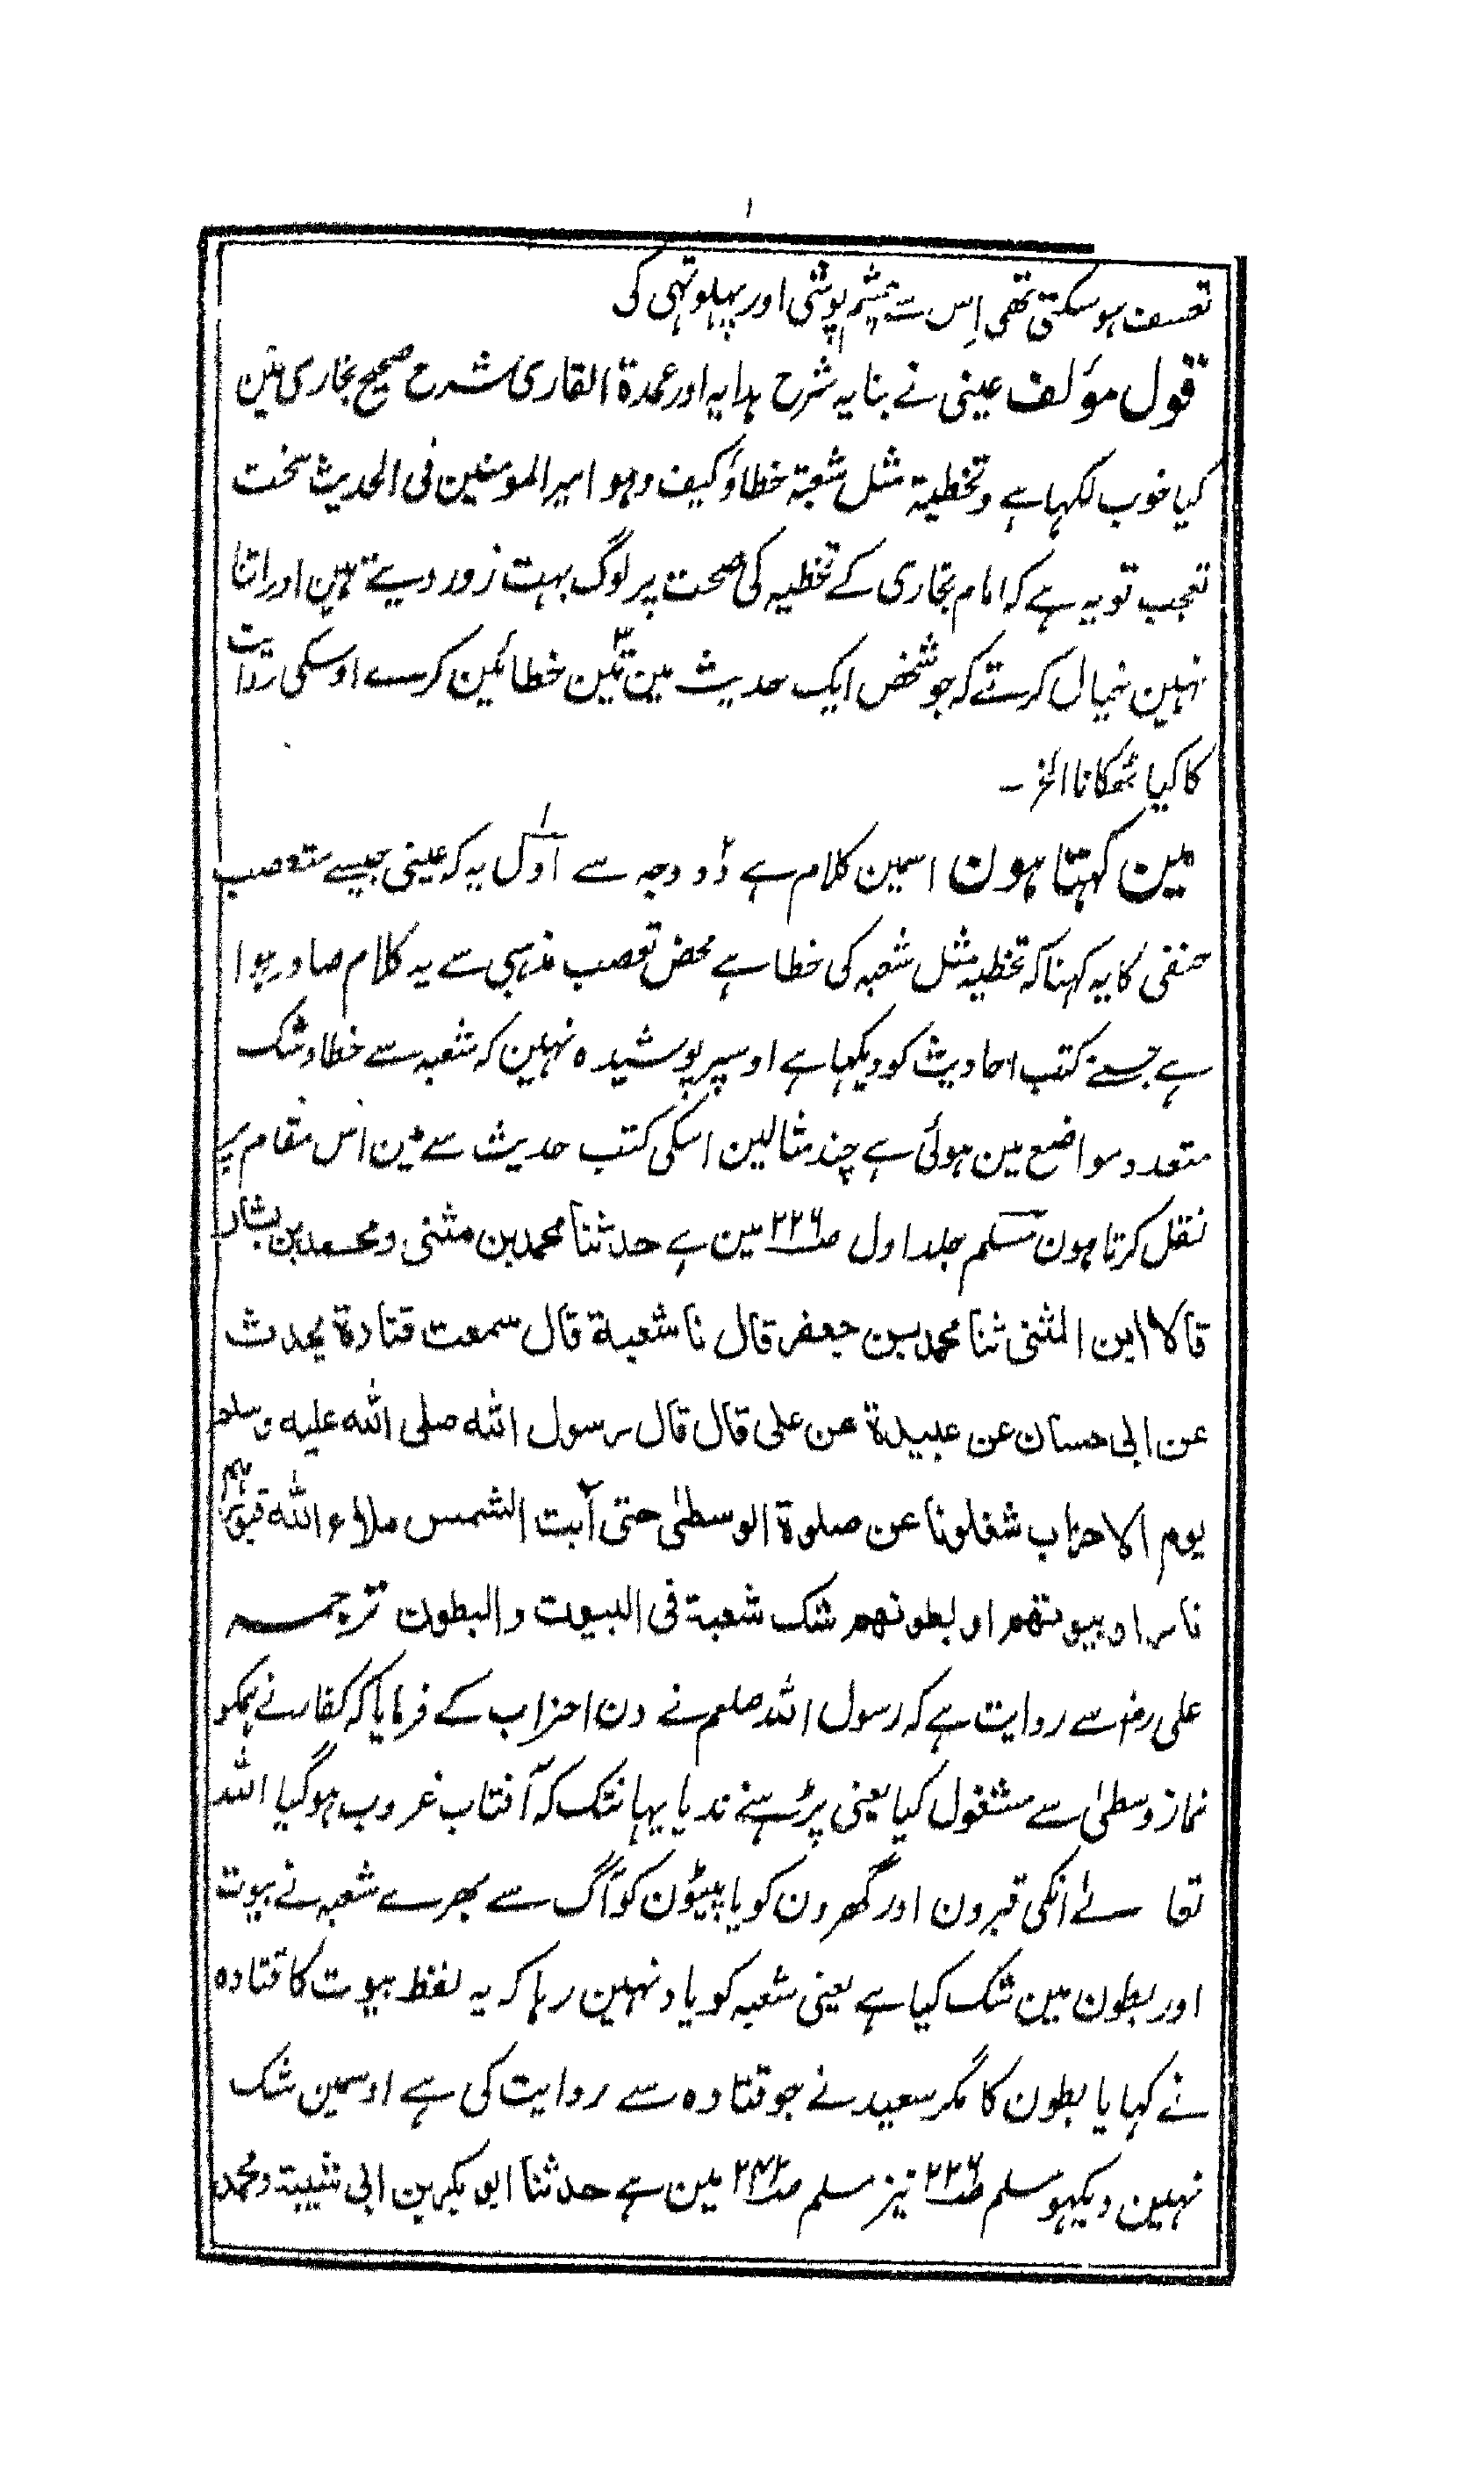 تعسف ہو سکتی تھی اِس سے چشم پوشی اور پہلو تہی کی
قول مؤلف عینی نے بنایہ شرح ہدایہ اور عمدۃ القاری شرح صحیح بخاری مین
کیا خوب لکہا ہے وتخطیۃ مثل شعبۃ خطاؤ کیف وہو امیر المومنین فی الحدیث سخت
تعجب تو یہ ہے کہ امام بخاری کے تخطیہ کی صحت پر لوگ بہت زور دیتے ہین اور اتنا
نہین خیال کرتے کہ جو شخص ایک حدیث مین تین خطائین کرے اوسکی روایت
کا کیا ٹھکانا الخ ـ
مین کہتا ہون اسمین کلام ہے دو وجہ سے اول یہ کہ عینی جیسے متعصب
حنفی کا یہ کہنا کہ تخطیہ مثل شعبہ کی خطا ہے محض تعصب مذہبی سے یہ کلام صادر ہوا
ہے جسنے کتب احادیث کو دیکہا ہے اوسپر پوشیدہ نہین کہ شعبہ سے خطا و شک
متعدد مواضع مین ہوئی ہے چند مثالین اسکی کتب حدیث سے مین اس مقام پر
نقل کرتا ہون مسلم جلد اول صـ۲۲۶ مین ہے حدثنا محمد بن مثنی و محمد بن بشار
قالا ابن المثنی ثنا محمد بن جعفر قال نا شعبة قال سمعت قتادة یحدث
عن ابی حسان عن عبیدة عن علی قال قال رسول الله صلی الله علیه وسلم
یوم الاحزاب شغلونا عن صلوة الوسطیٰ حتی آبت الشمس ملاء الله قبورهم
نارا و بیوتهم او بطونهم شک شعبة فی البیوت والبطون ترجمہ
علی رضؓ سے روایت ہے کہ رسول اللہ صلعم نے دن احزاب کے فرمایا کہ کفار نے ہمکو
نماز وسطیٰ سے مشغول کیا یعنی پڑہنے ندیا یہانتک کہ آفتاب غروب ہوگیا اللہ
تعالےٰ انکی قبرون اور گھرون کو یا پیٹون کو آگ سے بھرے شعبہ نے بیوت
اور بطون مین شک کیا ہے یعنی شعبہ کو یاد نہین رہا کہ یہ لفظ بیوت کا قتادہ
نے کہا یا بطون کا مگر سعید نے جو قتادہ سے روایت کی ہے اوسمین شک
نہین دیکہو مسلم صـ۲۲۶ نیز مسلم صـ۲۴۲ مین ہے حدثنا ابو بکر بن ابی شیبة و محمد